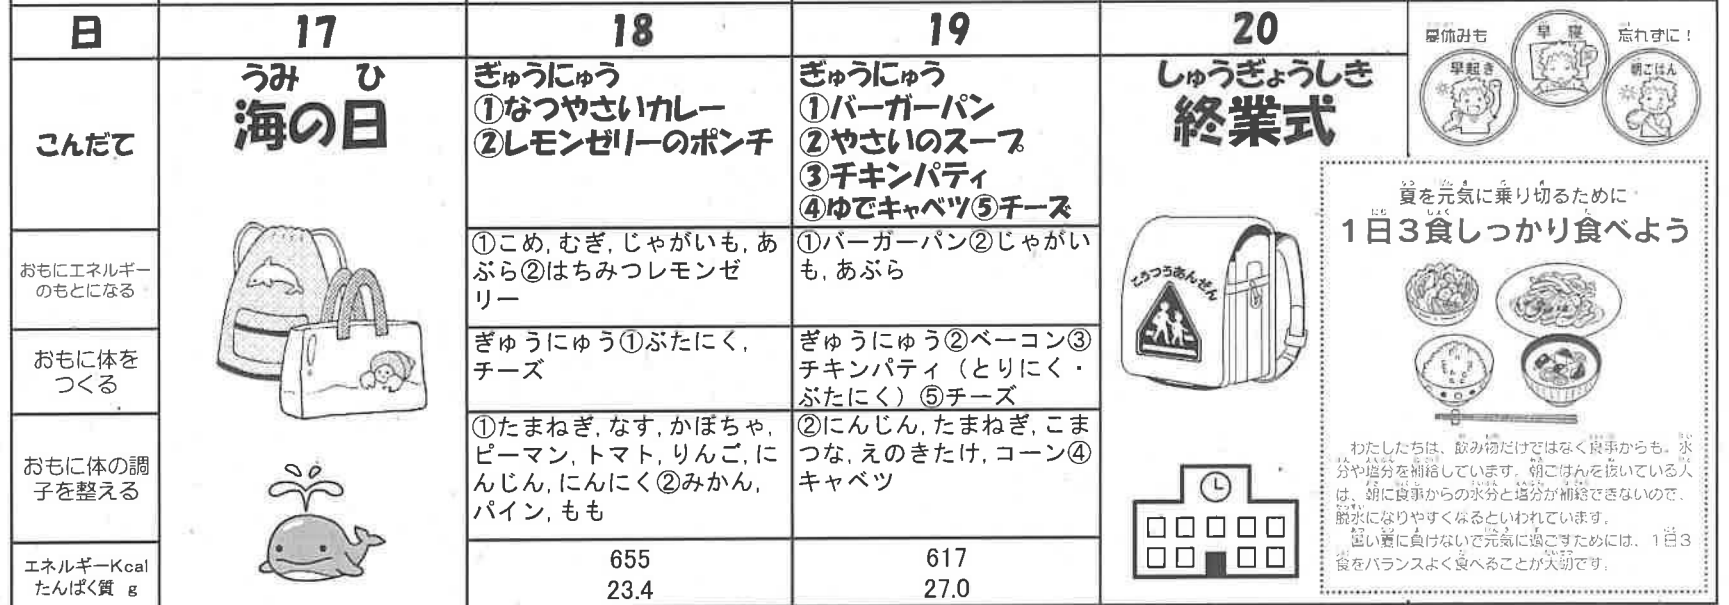 日
17
18
19
20
こんだて
うみ ひ
海の日
ぎゅうにゅう
①なつやさいカレー
②レモンゼリーのポンチ
ぎゅうにゅう
①バーガーパン
②やさいのスープ
③チキンパティ
④ゆでキャベツ⑤チーズ
しゅうぎょうしき
終業式
おもにエネルギー
のもとになる
①こめ, むぎ, じゃがいも, あ
ぶら②はちみつレモンゼ
リー
①バーガーパン②じゃがい
も, あぶら
おもに体を
つくる
ぎゅうにゅう①ぶたにく,
チーズ
ぎゅうにゅう②ベーコン③
チキンパティ（とりにく・
ぶたにく）⑤チーズ
おもに体の調
子を整える
①たまねぎ, なす, かぼちゃ,
ピーマン, トマト, りんご, に
んじん, にんにく②みかん,
パイン, もも
②にんじん, たまねぎ, こま
つな, えのきたけ, コーン④
キャベツ
エネルギーKcal
たんぱく質 g
655
23.4
617
27.0
こうつうあんぜん
夏休みも
早寝
忘れずに！
早起き
朝ごはん
夏を元気に乗り切るために
１日３食しっかり食べよう
わたしたちは、飲み物だけではなく食事からも、水
分や塩分を補給しています。朝ごはんを抜いている人
は、朝に食事からの水分と塩分が補給できないので、
脱水になりやすくなるといわれています。
暑い夏に負けないで元気に過ごすためには、１日３
食をバランスよく食べることが大切です。